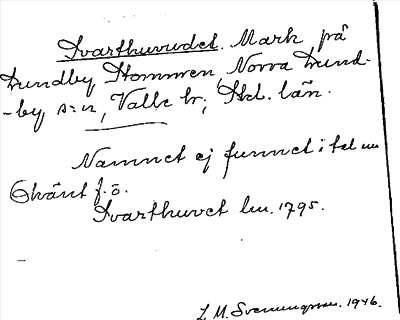 Svarthuvudet. Mark på
Lundby, Stommen, Norra Lund-
-by s:n, Valle hr; Skd. län.
Namnet ej funnet i tal
Okänt f.ö.
Svarthuvet lm. 1795.
L. M. Svenungsson. 1946.